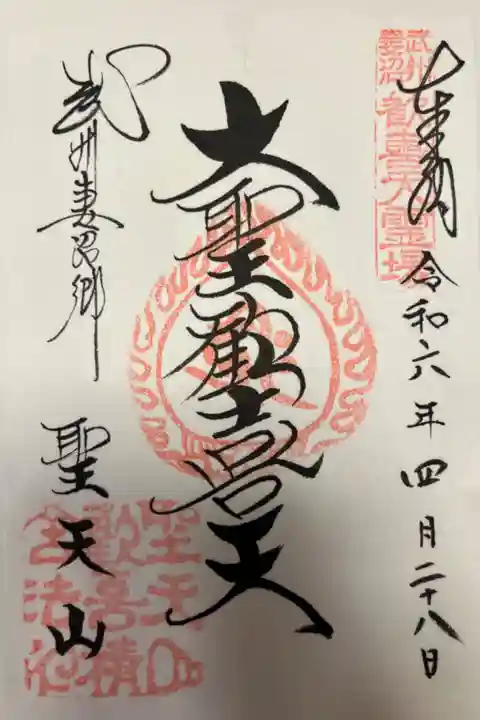 武州
妻沼
歓喜天霊場
奉拝
令和六年四月二十八日
大聖歓喜天
武州妻沼郷
聖天山
聖天山
歓喜積